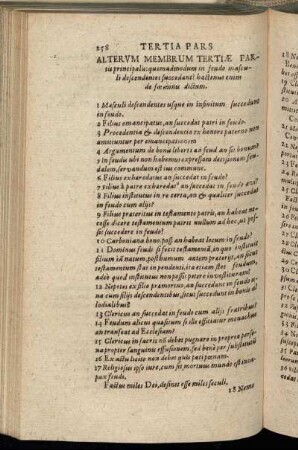 258 TERTIA PARS
ALTERVM MEMBRUM TERTIÆ PAR-
tis principalis: quomadmodum in feudo mascu-
li descendentes succedant: hactenus enim
de foeminis dictum.
1 Masculi descendentes usque in infinitum succedunt
in feudo.
2 Filius emancipatus, an succedat patri in feudo.
3 Procedentia & descendentia ex honore paterno non
amittuntur per emancipationem
4 Argumentum de bono liberto ad feud. an sit bonum?
& in feudo ubi non habemus expressam decisionem feu-
dalem, servandum est ius commune.
6 Filius exhæredatus an succedat in feudo?
7 Filius à patre exhæredatus an succedat in feudo avi?
8 Filius institutus in re certa, an & qualiter succedat
in feudo cum alijs?
9 Filius præteritus in testamento patris, an habeat ne-
cesse dicere testamentum patris nullum ad hoc, ut pos-
sit succedere in feudo?
10 Carboniana bono. poss. an habeat locum in feudo?
11 Dominus feudi si fecit testamentum, in quo instituit
filium iā natum, posthumum autem præteriit, an sicut
testamentum stat in pendenti, ita etiam stet feudum,
adeò quod institutus non possit agere pro feudo?
12 Nepotes ex filio præmortuo, an succedant in feudo
unà cum filijs descendentibus, sicut succedunt in bonis al-
lodialibus?
13 Clericus an succedat in feudo cum alijs fratribus?
14 Feudum alicuius quousque si ille efficiatur monachus
an transeat ad Ecclesiam?
15 Clericus in sacris nō debet pugnare in propria perso-
na propter sanguinis effusionem, sed benè per substitutū
16 Ex actu licito nemo debet quis pati pœnam.
17 Religiosus ipso iure, cum sit mortuus mundo est inca-
pax feudi.
Factus miles Dei, desinet esse miles seculi.
18 Nemo